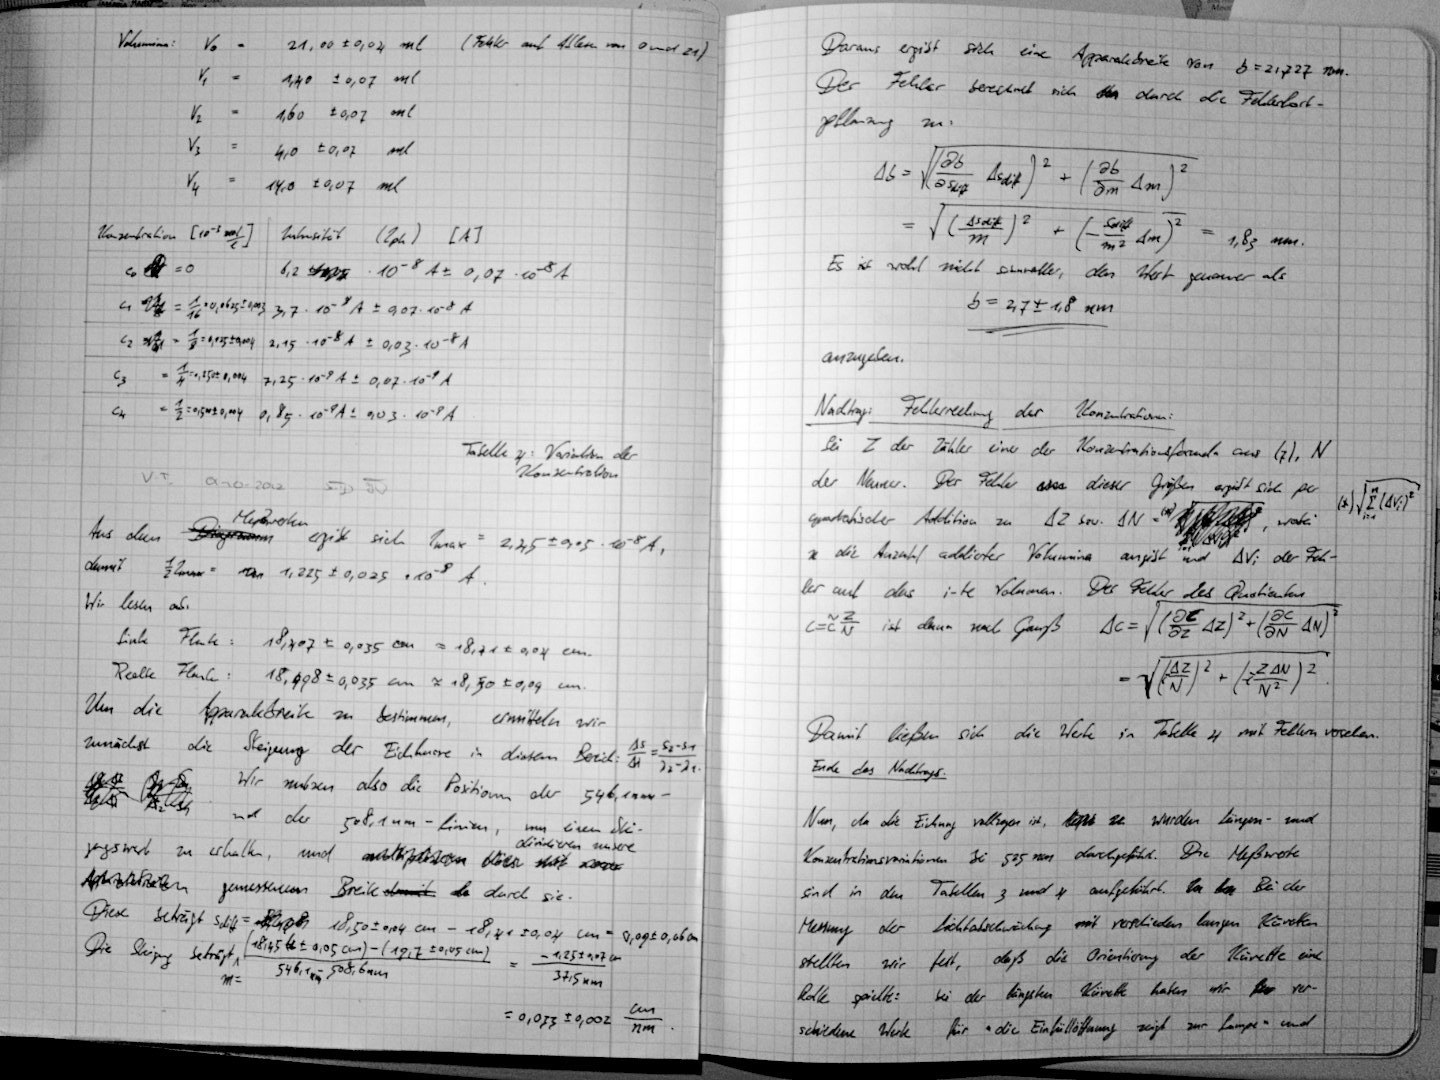 Volumina: V₀ = 21,00 ± 0,04 ml (Fehler auf Ablesen von 0 und 21)
V₁ = 1,40 ± 0,07 ml
V₂ = 1,60 ± 0,07 ml
V₃ = 4,0 ± 0,07 ml
V₄ = 14,0 ± 0,07 ml
Konzentration [10⁻³ mol/l] Intensität (Iph) [A]
c₀ = 0 6,2 · 10⁻⁸ A ± 0,07 · 10⁻⁸ A
c₁ = 1/16 = 0,0625 ± 0,003 3,7 · 10⁻⁸ A ± 0,07 · 10⁻⁸ A
c₂ = 1/8 = 0,125 ± 0,004 2,15 · 10⁻⁸ A ± 0,03 · 10⁻⁸ A
c₃ = 1/4 = 0,250 ± 0,004 7,25 · 10⁻⁹ A ± 0,07 · 10⁻⁹ A
c₄ = 1/2 = 0,500 ± 0,004 0,85 · 10⁻⁹ A ± 0,03 · 10⁻⁹ A
Tabelle 4: Variation der
Konzentration
Aus den Meßwerten ergibt sich Imax = 2,45 ± 0,05 · 10⁻⁸ A,
damit ½ Imax = 1,225 ± 0,025 · 10⁻⁸ A.
Wir lesen ab:
Linke Flanke: 18,407 ± 0,035 cm ≈ 18,41 ± 0,04 cm.
Rechte Flanke: 18,498 ± 0,035 cm ≈ 18,50 ± 0,04 cm.
Um die Apparatebreite zu bestimmen, ermitteln wir
zunächst die Steigung der Eichkurve in diesem Bereich: Δs/Δλ = s₂-s₁/λ₂-λ₁.
Wir nutzen also die Positionen der 546,1 nm-
und der 508,1 nm-Linien, um einen Stei-
gungswert zu erhalten, und dividieren unsere
gemessenen Breite durch sie.
Diese beträgt sdiff = 18,50 ± 0,04 cm − 18,41 ± 0,04 cm = 0,09 ± 0,06 cm
Die Steigung beträgt m = (18,45 ± 0,05 cm) − (19,7 ± 0,05 cm) / 546,1 nm − 508,6 nm = −1,25 ± 0,07 cm / 37,5 nm
= 0,033 ± 0,002 cm/nm.
Daraus ergibt sich eine Apparatebreite von b = 2,727 nm.
Der Fehler berechnet sich durch die Fehlerfort-
pflanzung zu:
Δb = √((∂b/∂sdiff Δsdiff)² + (∂b/∂m Δm)²
= √((Δsdiff/m)² + (−sdiff/m² Δm)² = 1,83 nm.
Es ist wohl nicht sinnvoller, den Wert genauer als
b = 2,7 ± 1,8 nm
anzugeben.
Nachtrag: Fehlerrechnung der Konzentrationen:
Sei Z der Zähler einer der Konzentrationsformeln aus (7), N
der Nenner. Der Fehler dieser Größen ergibt sich per
quadratischer Addition zu ΔZ bzw. ΔN = (*), wobei (*) √(Σ (ΔVᵢ)²
n die Anzahl addierter Volumina angibt und ΔVᵢ der Feh-
ler auf das i-te Volumen. Der Fehler des Quotienten
c = c̃ Z/N ist dann nach Gauß Δc = √((∂c/∂Z ΔZ)² + (∂c/∂N ΔN)²
= √((ΔZ/N)² + (ZΔN/N²)².
Damit ließen sich die Werte in Tabelle 4 mit Fehlern versehen.
Ende des Nachtrags.
Nun, da die Eichung vollzogen ist, wurden Längen- und
Konzentrationsvariationen bei 525 nm durchgeführt. Die Meßwerte
sind in den Tabellen 3 und 4 aufgeführt. Bei der
Messung der Lichtabschwächung mit verschieden langen Küvetten
stellten wir fest, daß die Orientierung der Küvette eine
Rolle spielte: bei der längsten Küvette haben wir ver-
schiedene Werte für "die Einfüllöffnung zeigt zur Lampe" und